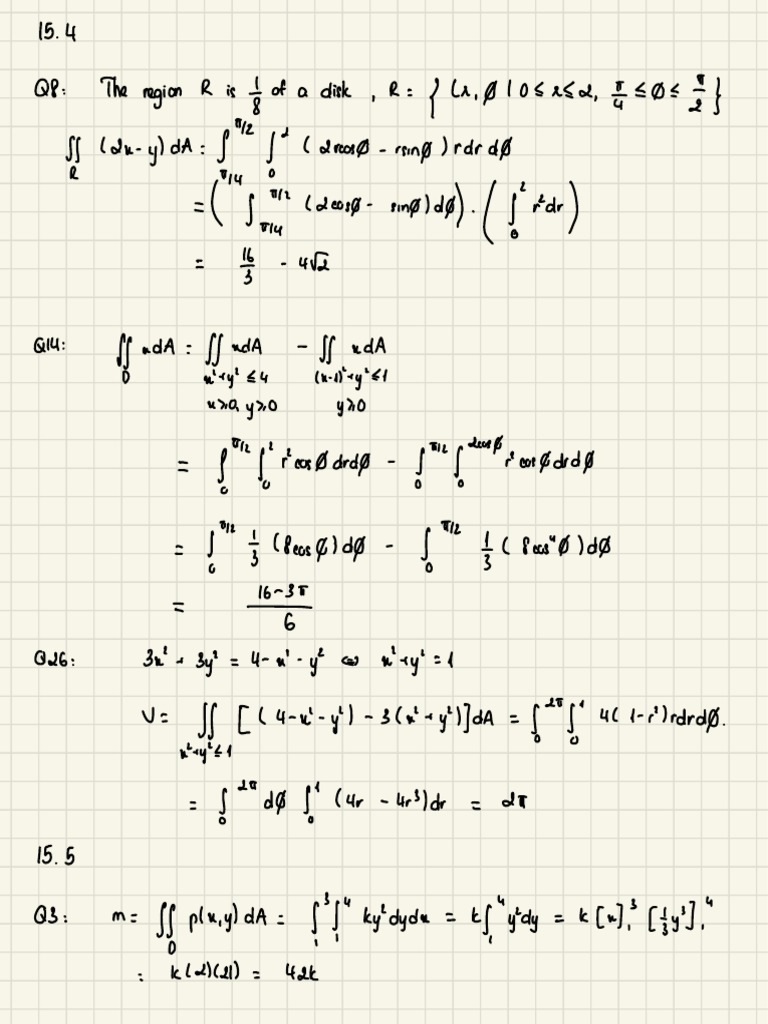 15.4
Q8: The region R is 1/8 of a disk, R = {(r, ø | 0 ≤ r ≤ 2, π/4 ≤ ø ≤ π/2}
∬_R (2x - y) dA = ∫_{π/4}^{π/2} ∫_0^2 (2rcosø - rsinø) r dr dø
= (∫_{π/4}^{π/2} (2cosø - sinø) dø) · (∫_0^2 r² dr)
= 16/3 - 4√2
Q14: ∬_D x dA = ∬_{x²+y² ≤ 4, x≥0, y≥0} x dA - ∬_{(x-1)²+y² ≤ 1, y≥0} x dA
= ∫_0^{π/2} ∫_0^2 r² cosø dr dø - ∫_0^{π/2} ∫_0^{2cosø} r² cosø dr dø
= ∫_0^{π/2} 1/3 (8cosø) dø - ∫_0^{π/2} 1/3 (8cos⁴ø) dø
= (16-3π)/6
Q26: 3x² + 3y² = 4 - x² - y² ⇔ x² + y² = 1
V = ∬_{x²+y² ≤ 1} [(4 - x² - y²) - 3(x² + y²)] dA = ∫_0^{2π} ∫_0^1 4(1 - r²) r dr dø.
= ∫_0^{2π} dø ∫_0^1 (4r - 4r³) dr = 2π
15.5
Q3: m = ∬_D p(x,y) dA = ∫_1^3 ∫_1^4 ky² dy dx = k∫_1^4 y² dy = k [x]_1^3 [1/3 y³]_1^4
= k(2)(21) = 42k